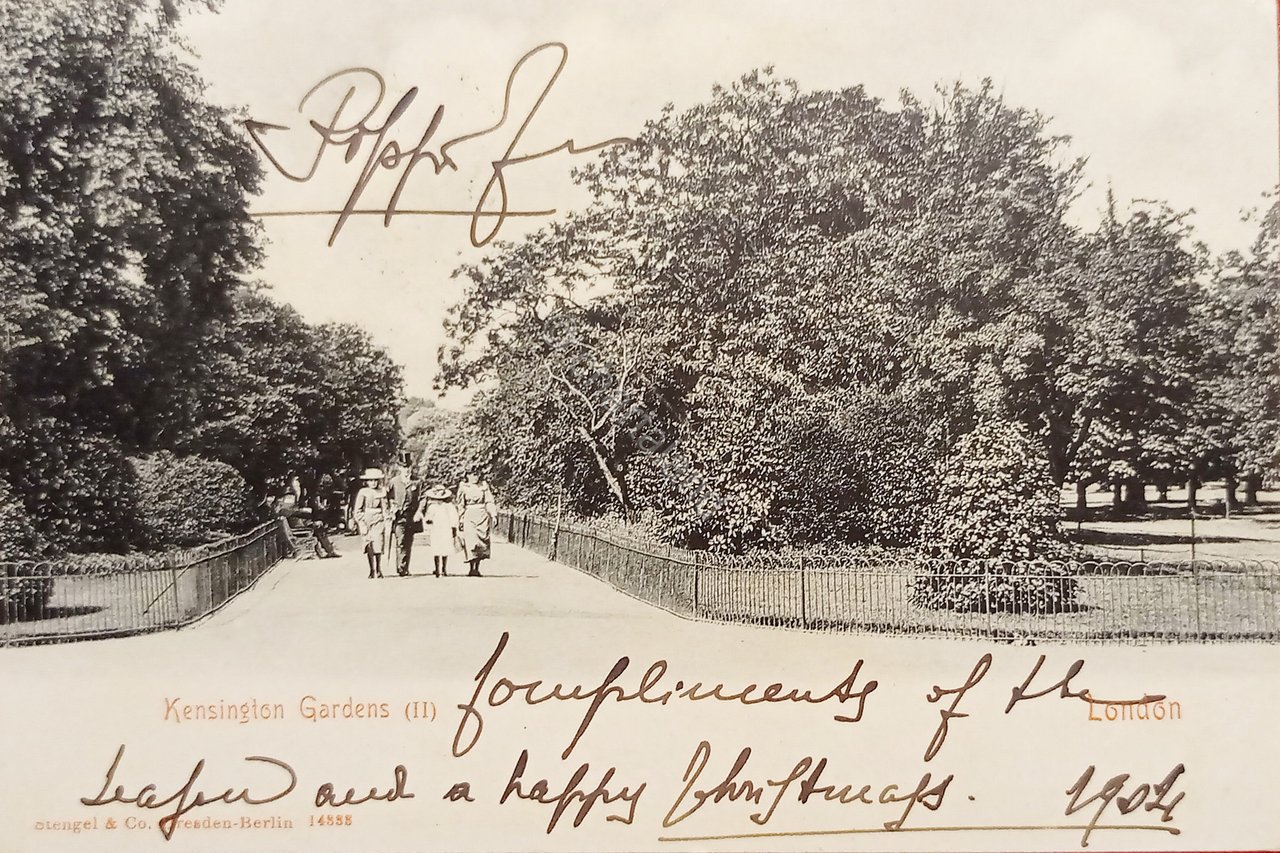 Kensington Gardens (II)
Compliments of the
London
Season and a happy Christmas. 1904
Stengel & Co. Dresden-Berlin 14888